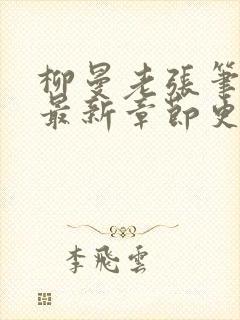 柳曼老張筆
最新章節史
李飛雲